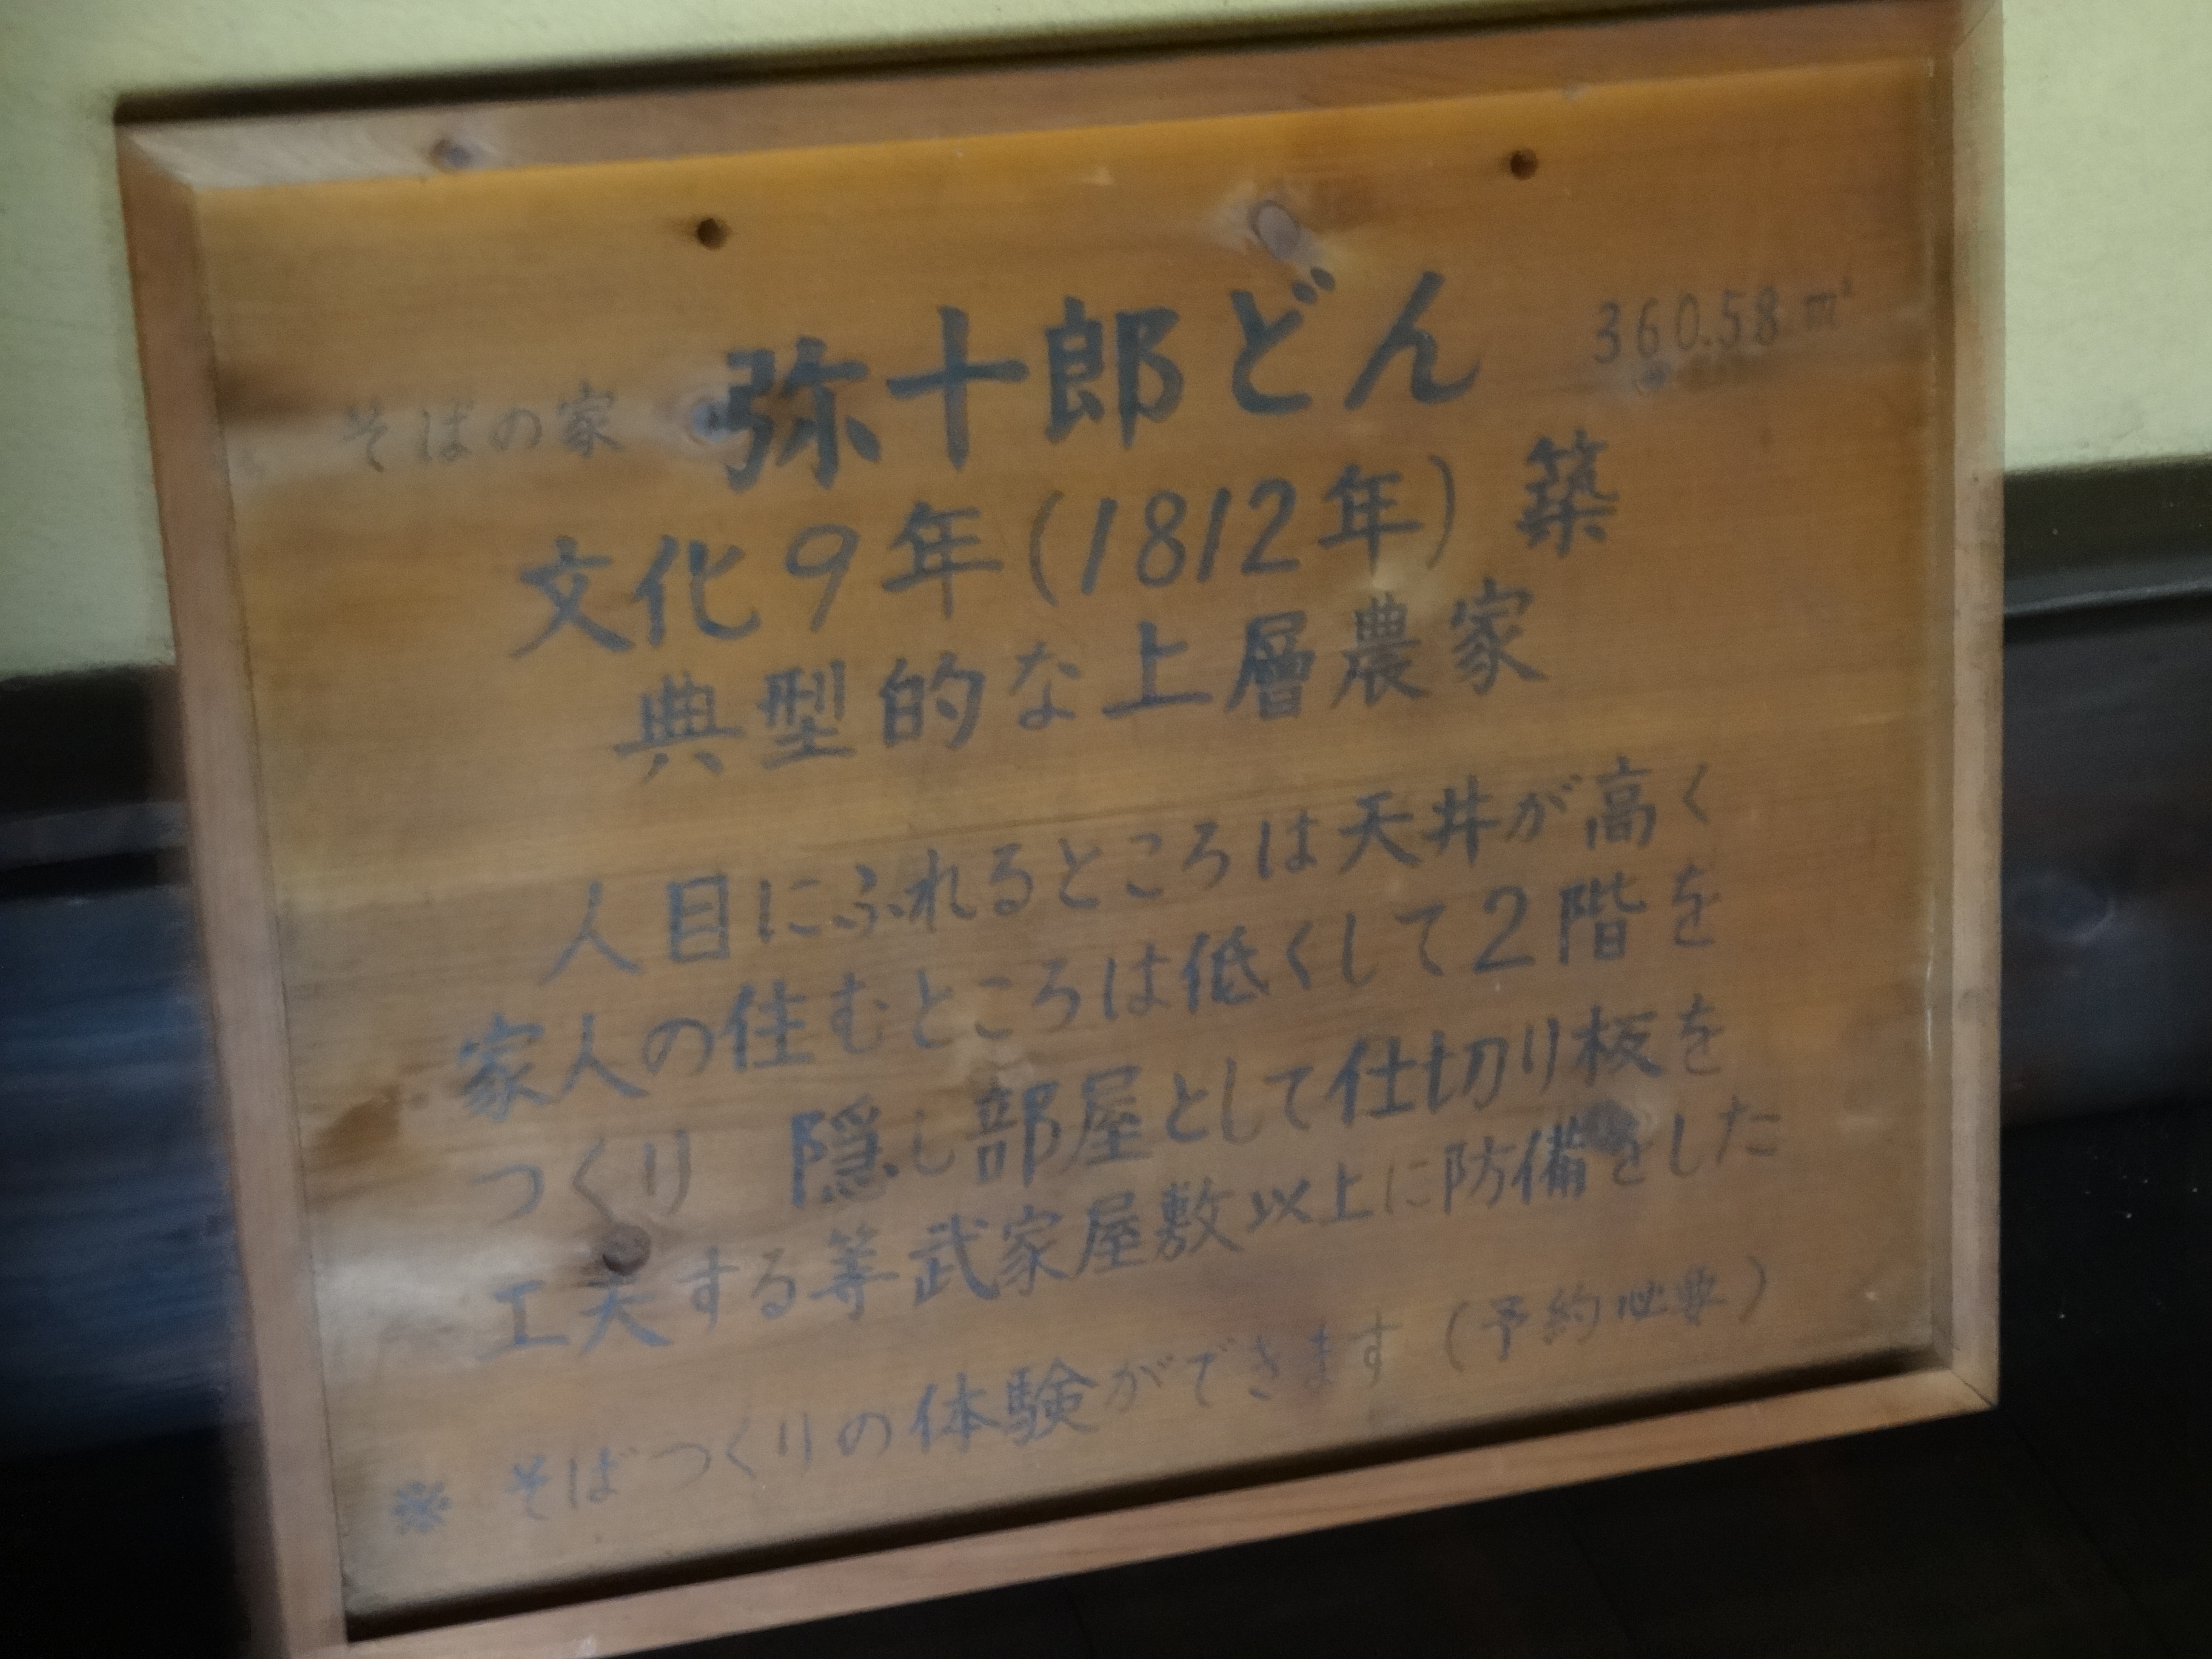 そばの家 弥十郎どん 360.58㎡
文化9年(1812年)築
典型的な上層農家
人目にふれるところは天井が高く
家人の住むところは低くして2階を
つくり 隠し部屋として仕切り板を
工夫する等武家屋敷以上に防備をした
※ そばつくりの体験ができます(予約必要)